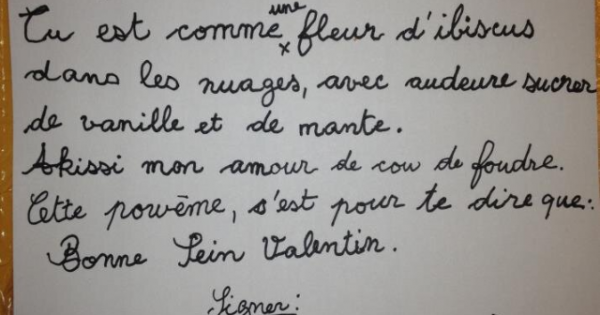 Tu est comme une fleur d'ibiscus
dans les nuages, avec audeure sucrer
de vanille et de mante.
Akissi mon amour de cou de foudre.
Cette powème, s'est pour te dire que:
Bonne Sein Valentin.
Signer: